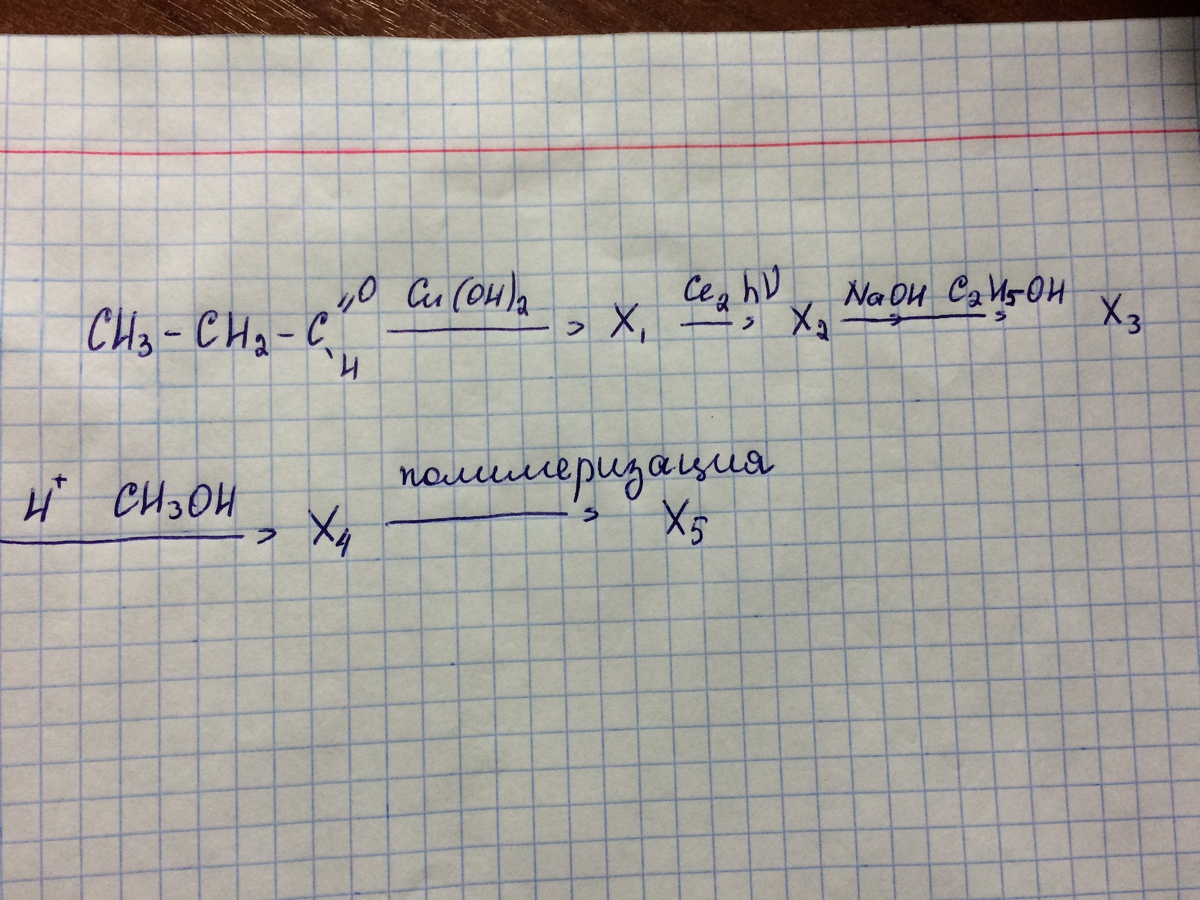 CH₃ – CH₂ – C =O H Cu(OH)₂ → X₁ Cl₂ hν → X₂ NaOH C₂H₅OH → X₃
H⁺ CH₃OH → X₄ полимеризация → X₅